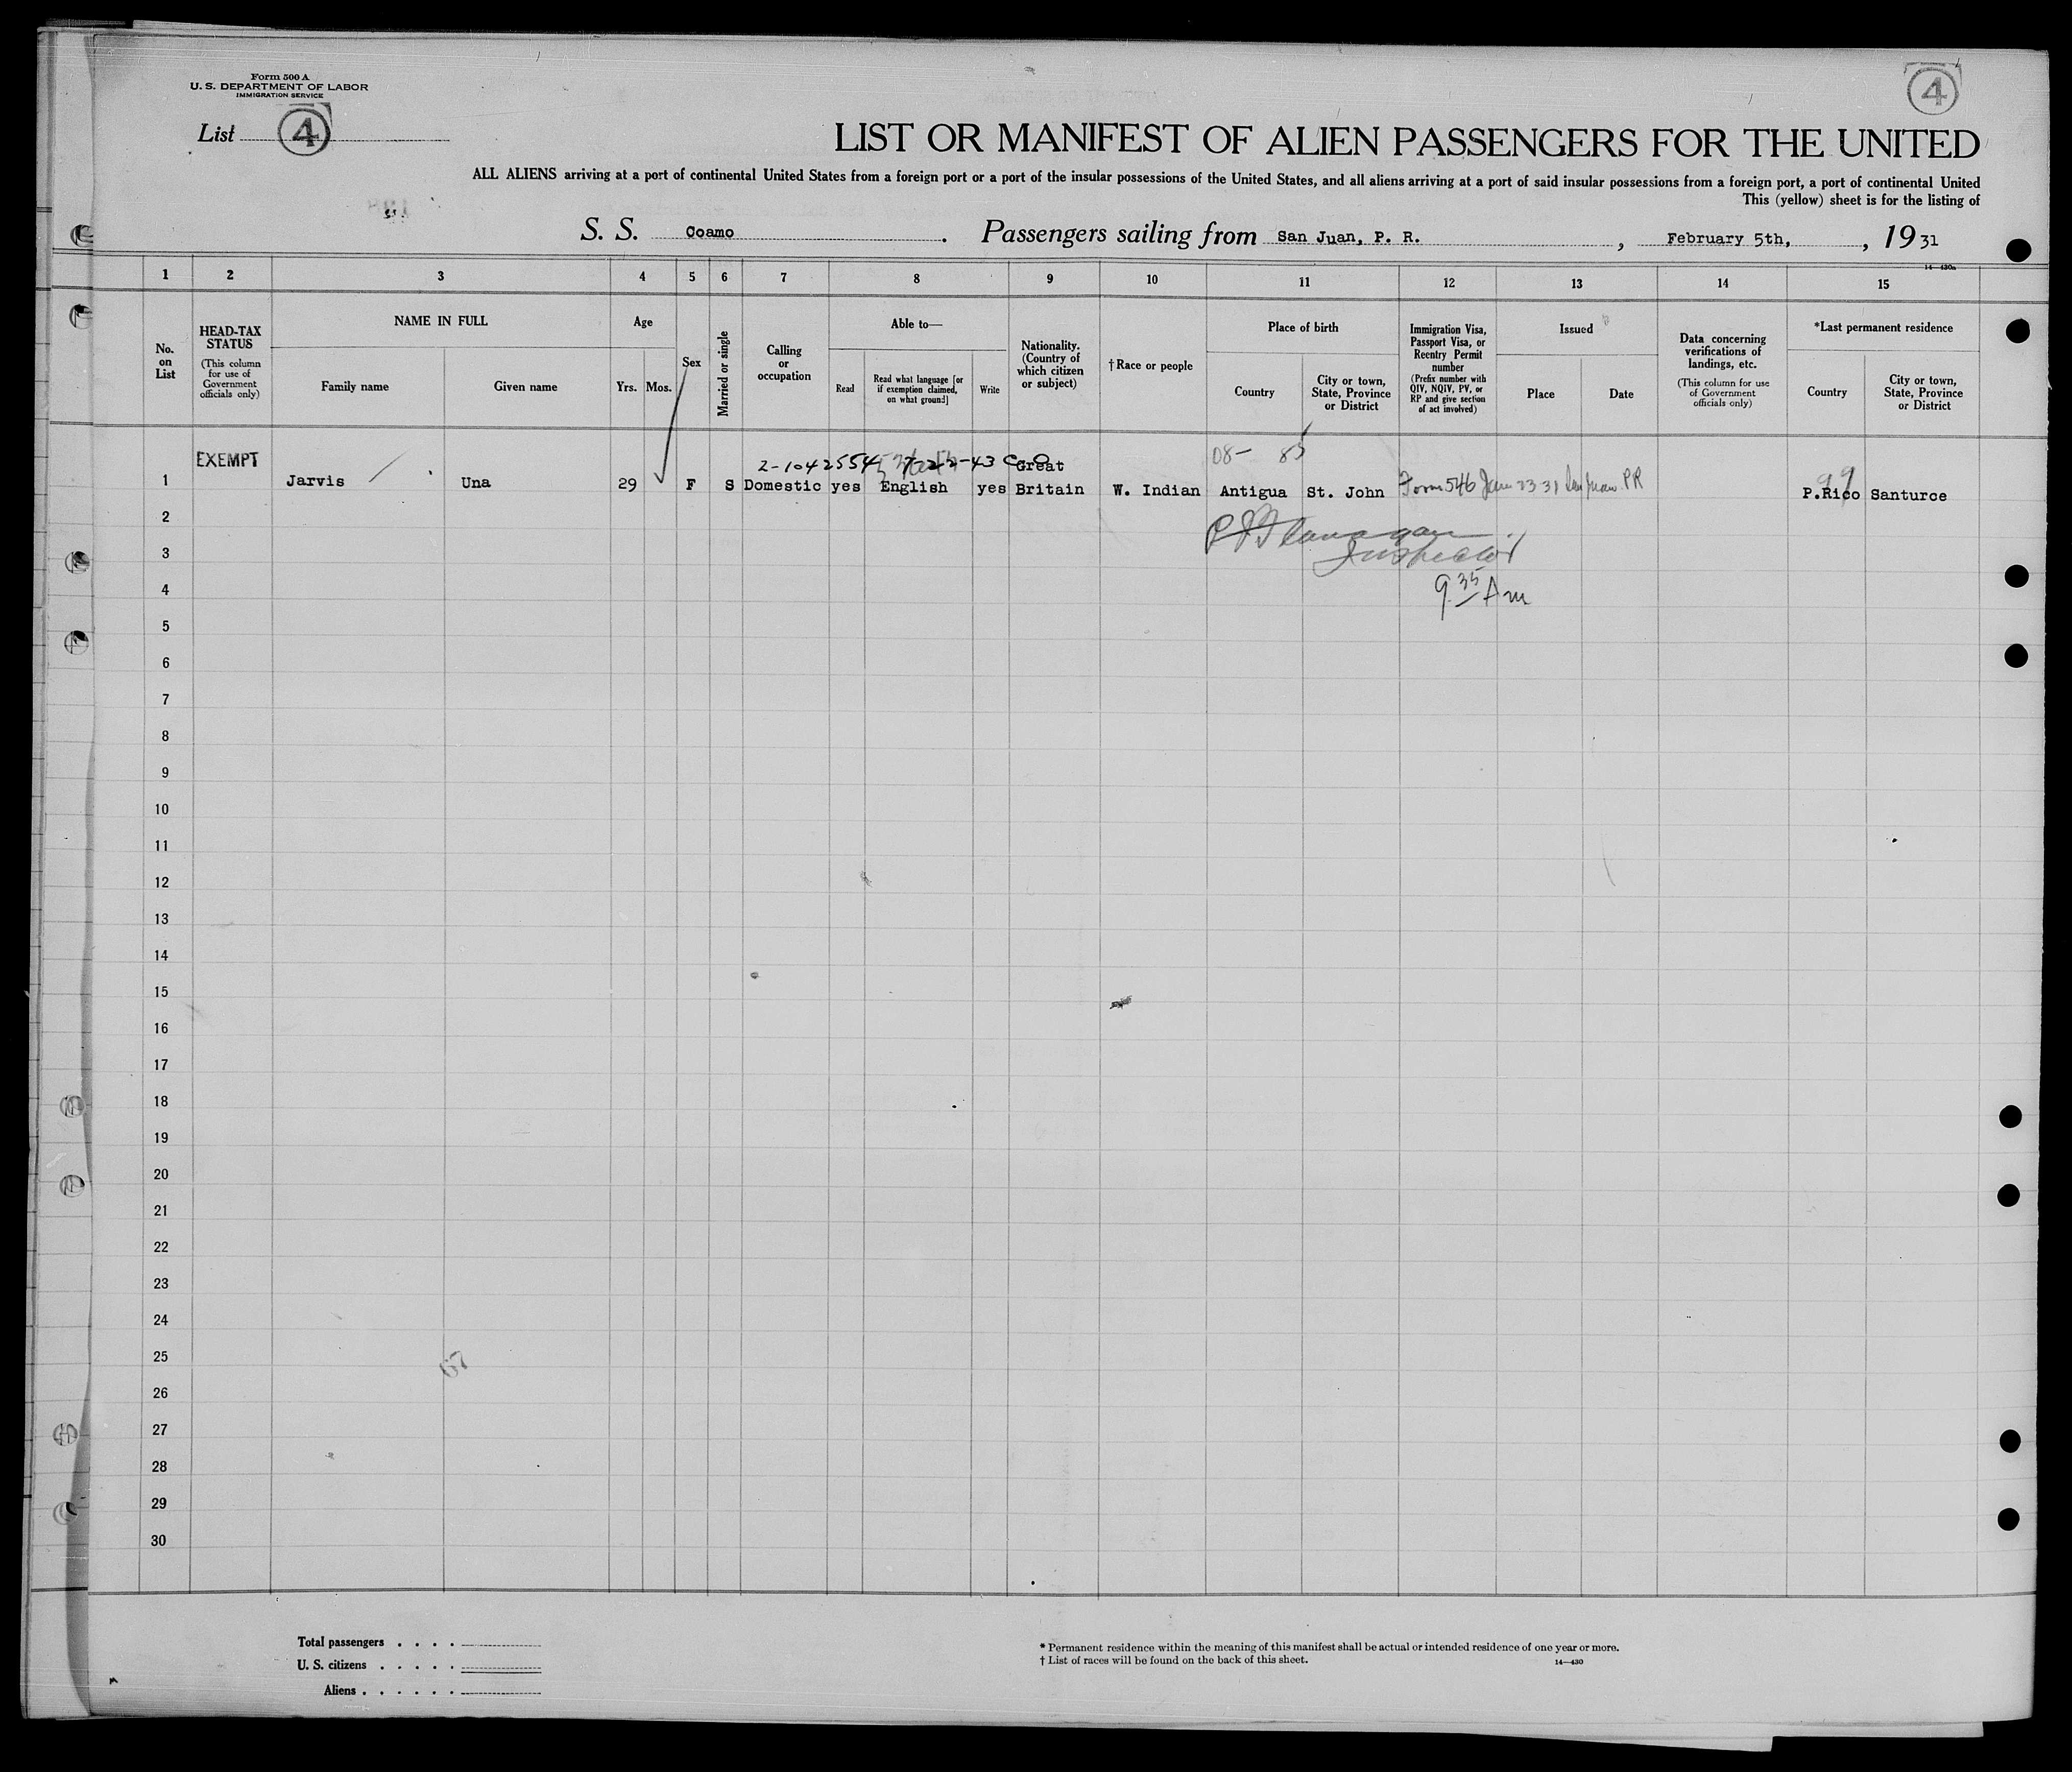 Form 500 A
U. S. DEPARTMENT OF LABOR
IMMIGRATION SERVICE
List 4
4
LIST OR MANIFEST OF ALIEN PASSENGERS FOR THE UNITED
ALL ALIENS arriving at a port of continental United States from a foreign port or a port of the insular possessions of the United States, and all aliens arriving at a port of said insular possessions from a foreign port, a port of continental United
This (yellow) sheet is for the listing of
S. S. Coamo. Passengers sailing from San Juan, P. R., February 5th,, 1931
14—430a
1 2 3 4 5 6 7 8 9 10 11 12 13 14 15
No. on List
HEAD-TAX STATUS
(This column for use of Government officials only)
NAME IN FULL
Family name
Given name
Age
Yrs.
Mos.
Sex
Married or single
Calling or occupation
Able to—
Read
Read what language [or if exemption claimed, on what ground]
Write
Nationality. (Country of which citizen or subject)
†Race or people
Place of birth
Country
City or town, State, Province or District
Immigration Visa, Passport Visa, or Reentry Permit number
(Prefix number with QIV, NQIV, PV, or RP and give section of act involved)
Issued
Place
Date
Data concerning verifications of landings, etc.
(This column for use of Government officials only)
*Last permanent residence
Country
City or town, State, Province or District
EXEMPT
2-1042554 7-22-43
08- 85
99
1 Jarvis Una 29 F S Domestic yes English yes Great Britain W. Indian Antigua St. John Form 546 Jan 23 31 San Juan PR P.Rico Santurce
2
Flanagan
3
Inspector
4
9 35 Am
5
6
7
8
9
10
11
12
13
14
15
16
17
18
19
20
21
22
23
24
25
67
26
27
28
29
30
Total passengers . . . .
U. S. citizens . . . . .
Aliens . . . . . .
* Permanent residence within the meaning of this manifest shall be actual or intended residence of one year or more.
† List of races will be found on the back of this sheet.
14—430